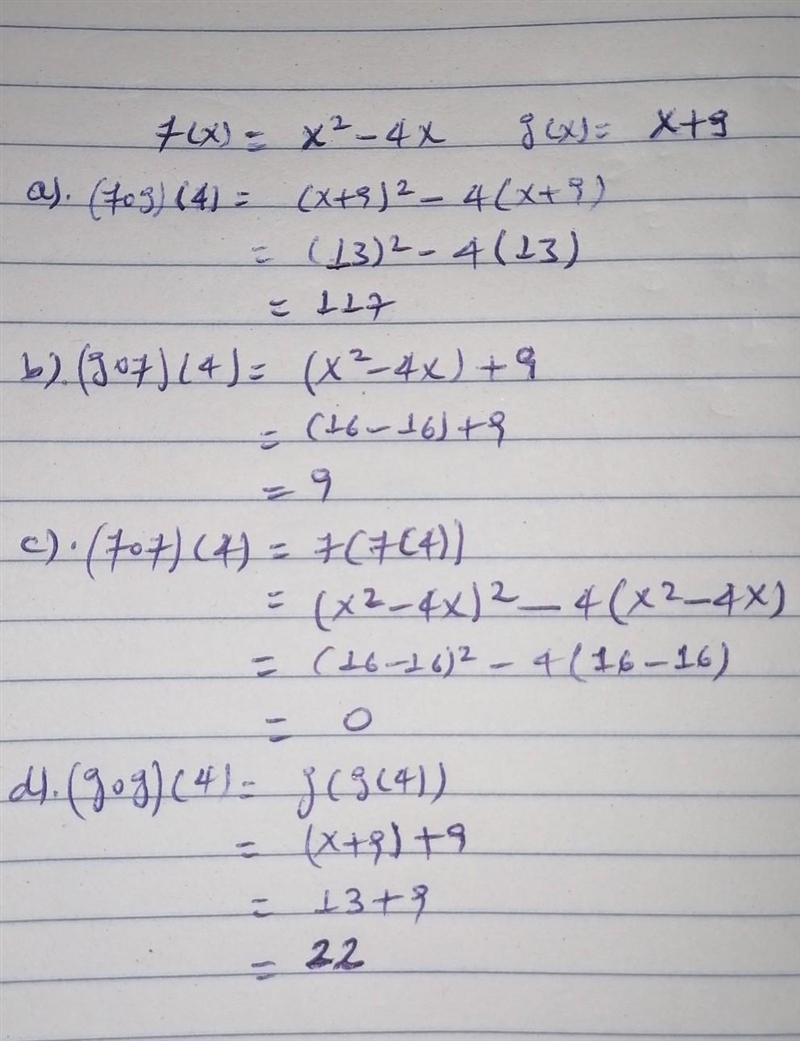 f(x) = x² - 4x g(x) = x+9
a). (fog)(4) = (x+9)² - 4(x+9)
= (13)² - 4(13)
= 117
b). (gof)(4) = (x² - 4x) + 9
= (16-16)+9
= 9
c). (fof)(4) = f(f(4))
= (x² - 4x)² - 4(x² - 4x)
= (16-16)² - 4(16-16)
= 0
d). (gog)(4) = g(g(4))
= (x+9)+9
= 13+9
= 22